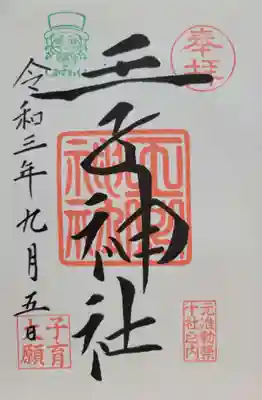 奉拝
王子神社
王子神社
元准勅祭
十社之内
令和三年九月五日
子育
大願